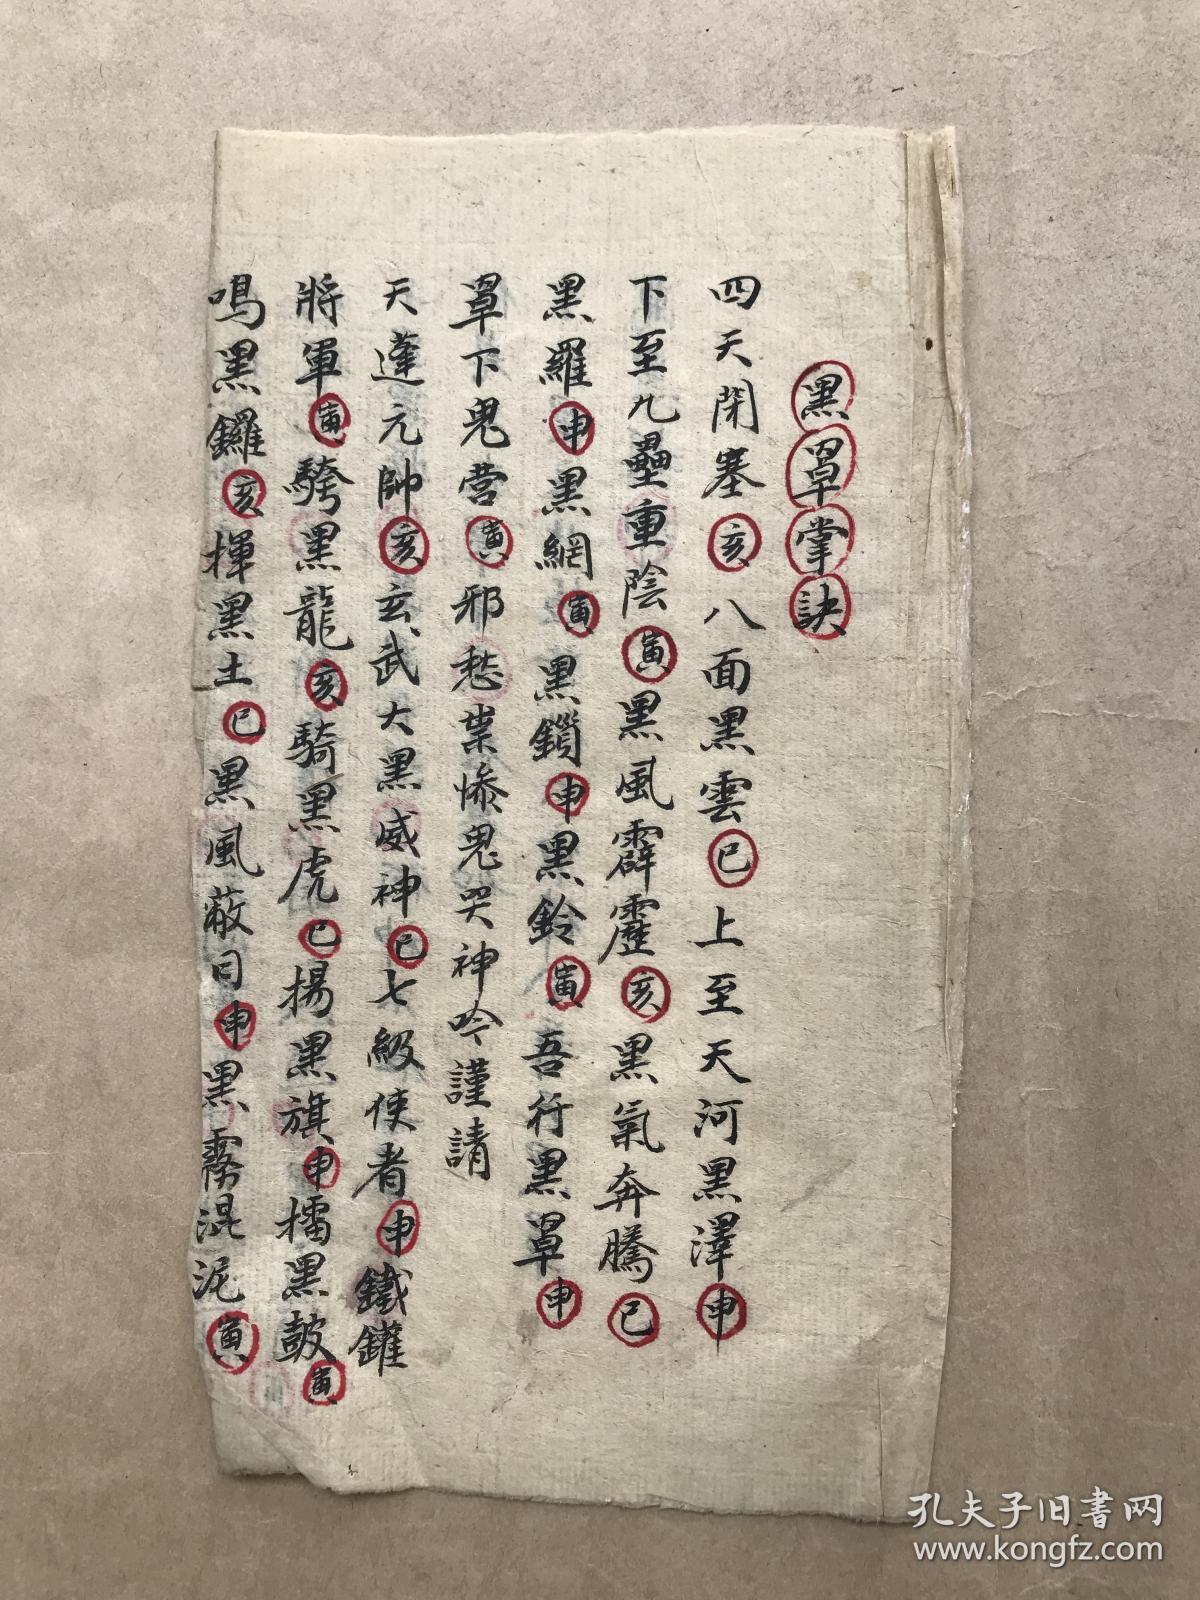 黑罩掌訣
四天閉塞亥八面黑雲巳上至天河黑澤申
下至九壘重陰寅黑風霹靂亥黑氣奔騰巳
黑羅申黑網寅黑鎖申黑鈴寅吾行黑罩申
罩下鬼营寅邪愁業慘鬼哭神吟謹請
天蓬元帥亥玄武大黑威神巳七級使者申鐵鑵
將軍寅騎黑龍亥騎黑虎巳揚黑旗申擂黑皷寅
鳴黑鑼亥揮黑土巳黑風蔽日申黑霧混泥寅
孔夫子旧书网
www.kongfz.com